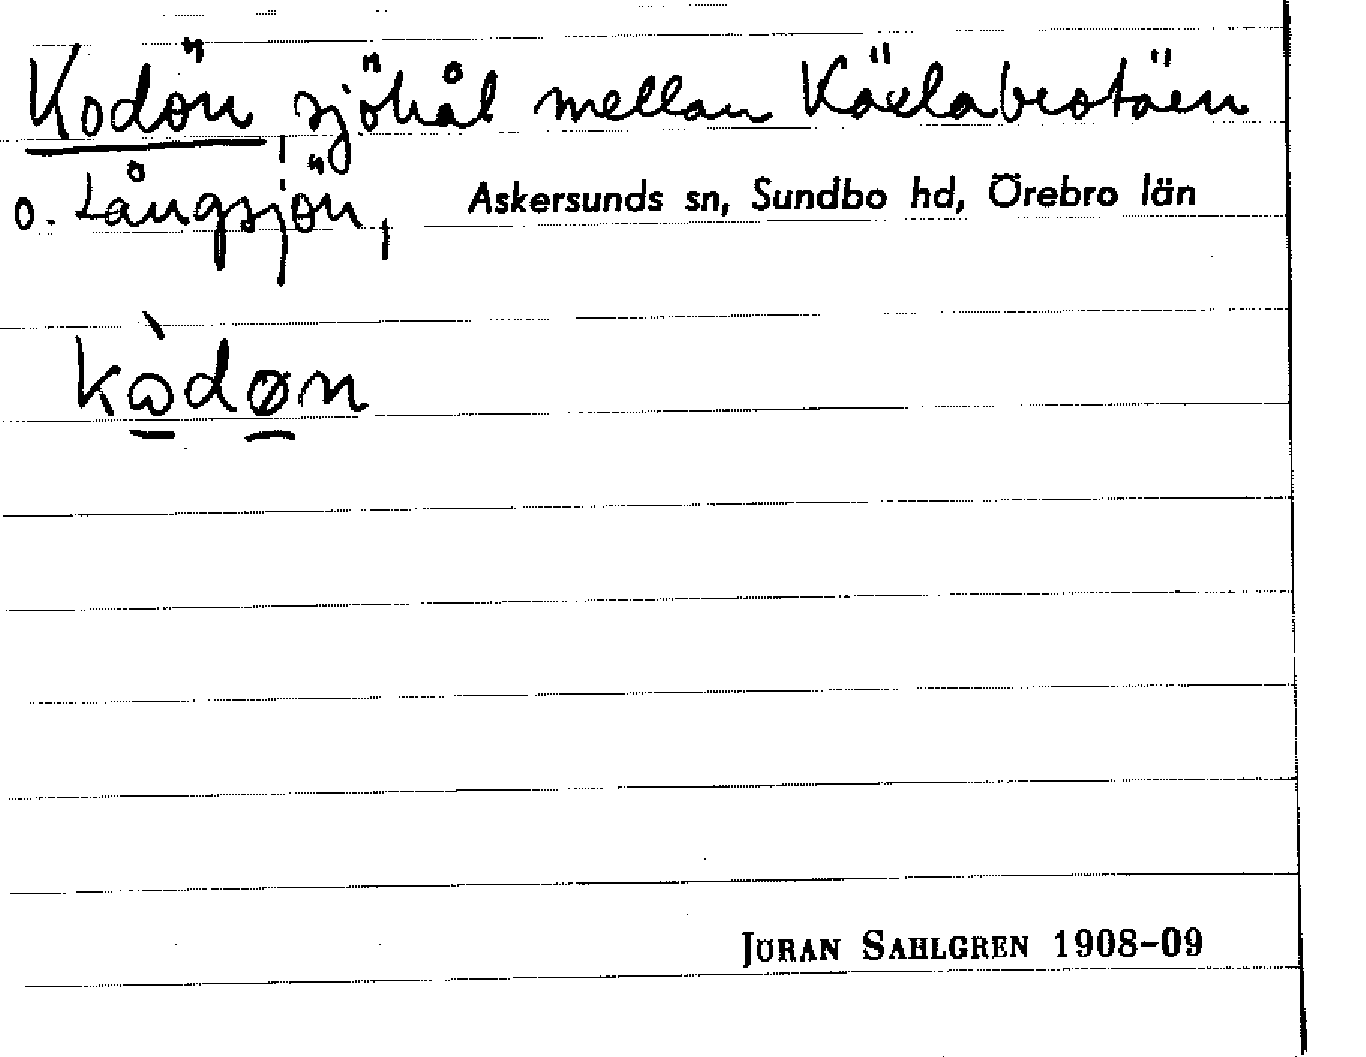 Kodön, sjöhål mellan Kärlabrotärn
o. Långsjön, Askersunds sn, Sundbo hd, Örebro län
kòdøn
JÖRAN SAHLGREN 1908-09